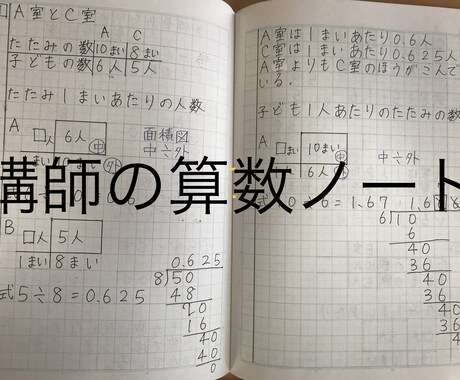 A室とC室
A C
たたみの数 10まい 8まい
子どもの数 6人 5人
たたみ1まいあたりの人数
A □人 6人 中
面積図
中÷外
B □人 5人
1まい 8まい
0.625
8)50
48
20
16
40
40
0
式5÷8=0.625
A室は1まいあたり0.6人
C室は1まいあたり0.625人
A室よりもC室のほうがこんで
いる。
子ども1人あたりのたたみの数
A □まい 10まい 中
6人 外
中÷外
=1.67
6)10
6
40
36
40
36
40
36
4
講師の算数ノート